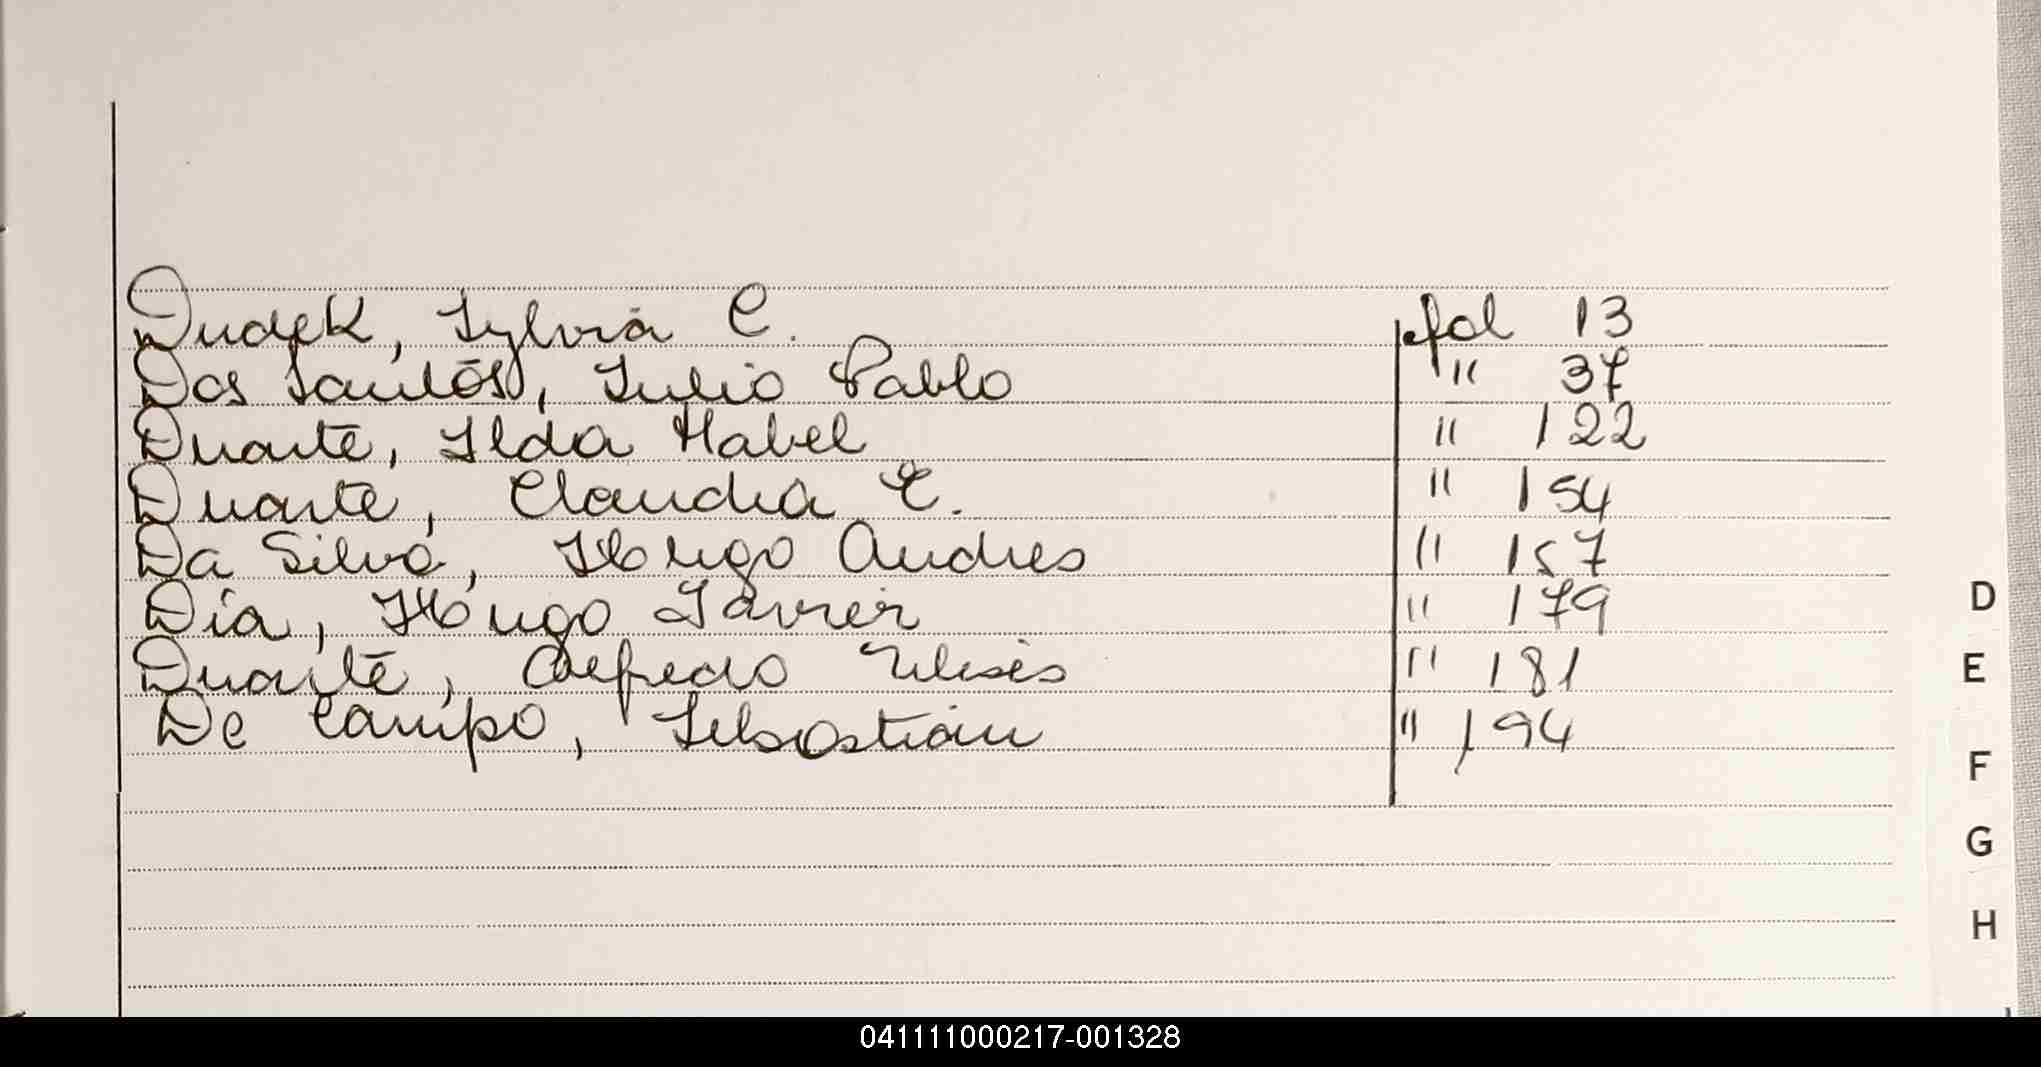 Dudek, Sylvia C. fol 13
Dos Santos, Julio Pablo " 37
Duarte, Ilda Mabel " 122
Duarte, Claudia E. " 154
Da Silva, Hugo Andres " 157
Dia, Hugo Javier " 179
Duarte, Alfredo Ulises " 181
De Campo, Sebastián " 194
D
E
F
G
H
041111000217-001328